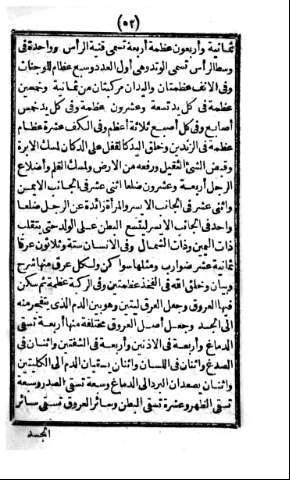 (٥٢)
ثمانية وأربعون عظمة أربعة تسمى قنية الرأس وواحدة فى
وسط الرأس تسمى الوتد وهى أول العدد وسبع عظام للوجنات
وفى الانف عظمتان واليدان مركبتان من ثمانية وخمسين
عظمة فى كل يد تسعة وعشرون عظمة وفى كل يد خمس
أصابع وفى كل أصبع ثلاثة أعظم وفى الكف عشرة عظام
عظمة فى الزندين وخلق اليد كالقفل على الدكان لمسك الابرة
وقبض الشئ الثقيل ورفعه من الارض ولمسك القلم وأضلاع
الرجل أربعة وعشرون ضلعا اثنى عشر فى الجانب الايمن
واثنى عشر فى الجانب الايسر والمرأة زائدة عن الرجل ضلعا
واحد فى الجانب الايسر ليتسع البطن على الولد حتى يتقلب
ذات اليمين وذات الشمال وفى الانسان ستة وثلاثون عرقا
ثمانية عشر ضوارب ومثلها سواكن ولكل عرق منها شرح
وبيان وخلق الله فى الفخذ عظمتين وفى الركبة عظمة ثم سكن
فيها العروق وجعل العرق لينين وهو بين الدم الذى يتفجر منه
الى الجسد وجعل أصل العروق مختلفة منها أربعة تسقى
الدماغ وأربعة فى الاذنين وأربعة فى الشفتين واثنان فى
الصدغ واثنان فى اللسان واثنان يسقيان الدم الى الكليتين
واثنان يصعدان البرد الى الدماغ وسبعة تسقى الصدر وسبعة
تسقى الظهر وعشرة تسقى البطن وسائر العروق تسقى سائر
الجسد